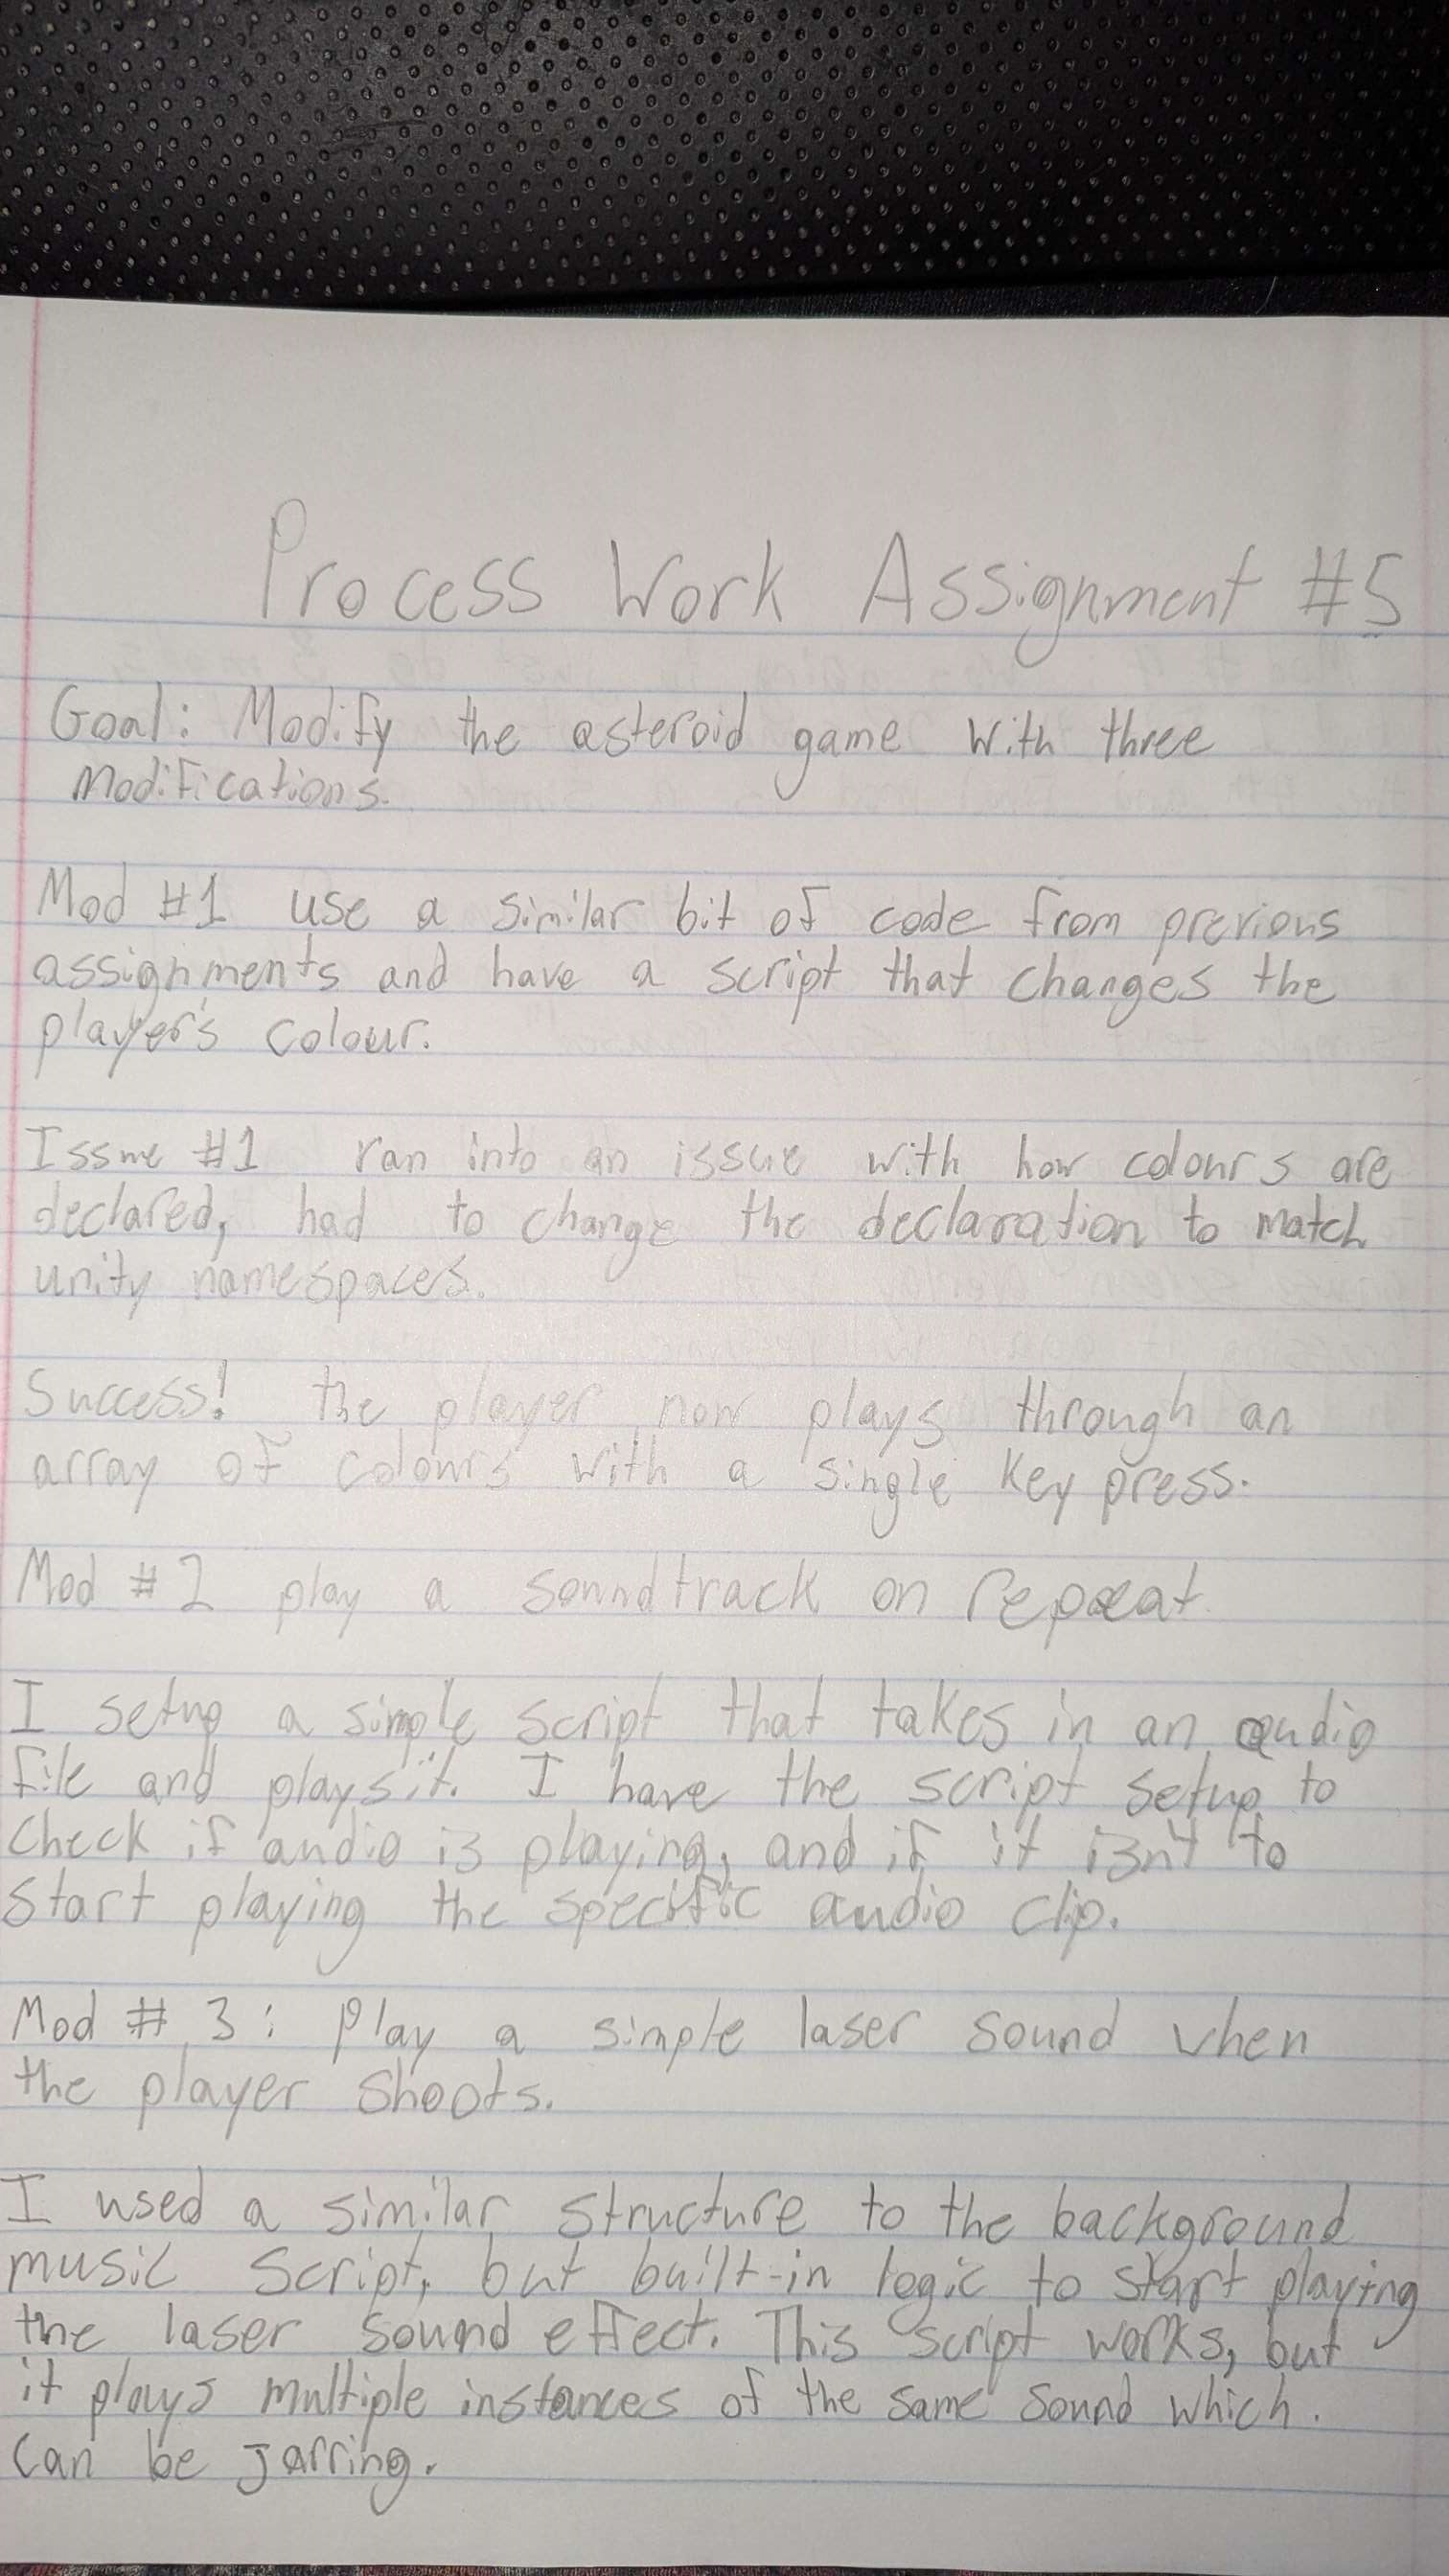 Process Work Assignment #5
Goal: Modify the asteroid game with three
modifications.
Mod #1 use a similar bit of code from previous
assignments and have a script that changes the
player's colour.
Issue #1 ran into an issue with how colours are
declared, had to change the declaration to match
unity namespaces.
Success! the player now plays through an
array of colours with a single key press.
Mod #2 play a soundtrack on repeat
I setup a simple script that takes in an audio
file and plays it. I have the script setup to
check if audio is playing, and if it isn't to
start playing the specific audio clip.
Mod # 3: Play a simple laser sound when
the player shoots.
I used a similar structure to the background
music script, but built-in logic to start playing
the laser sound effect. This script works, but
it plays multiple instances of the same sound which.
can be jarring.